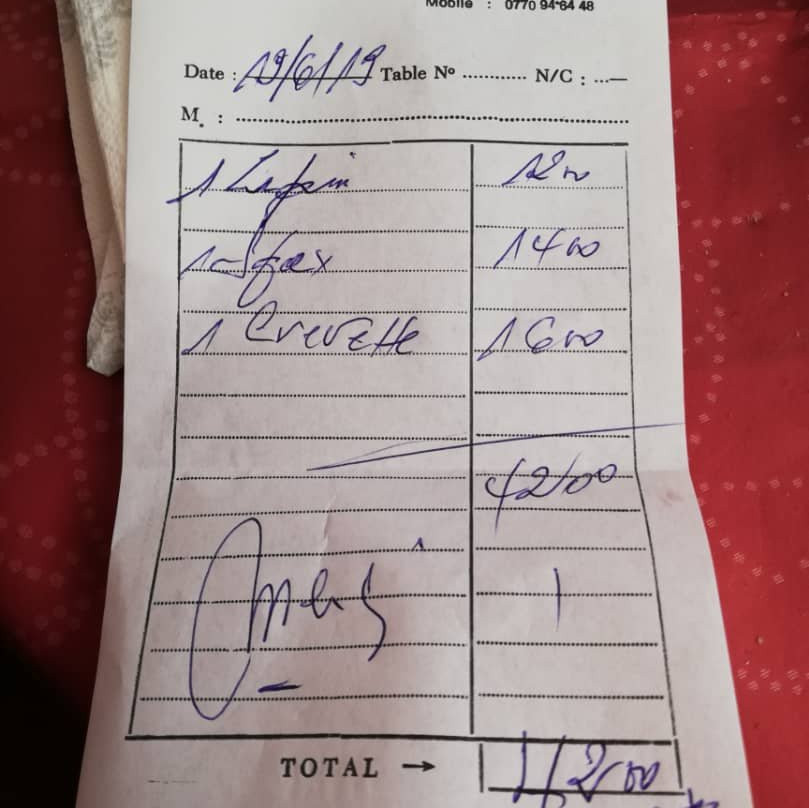 Mobile : 0770 94 64 48
Date : 19/6/19 Table Nº ............ N/C : ...
M. : ....................
1 Lapin 1200
1 1400
1 Crevette 1600
4200
TOTAL → 4200